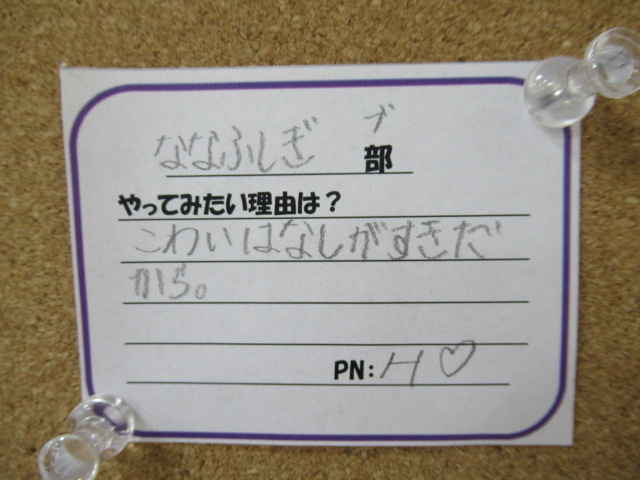 ななふしぎ 部
ブ
やってみたい理由は?
こわいはなしがすきだ
から。
PN:H♡